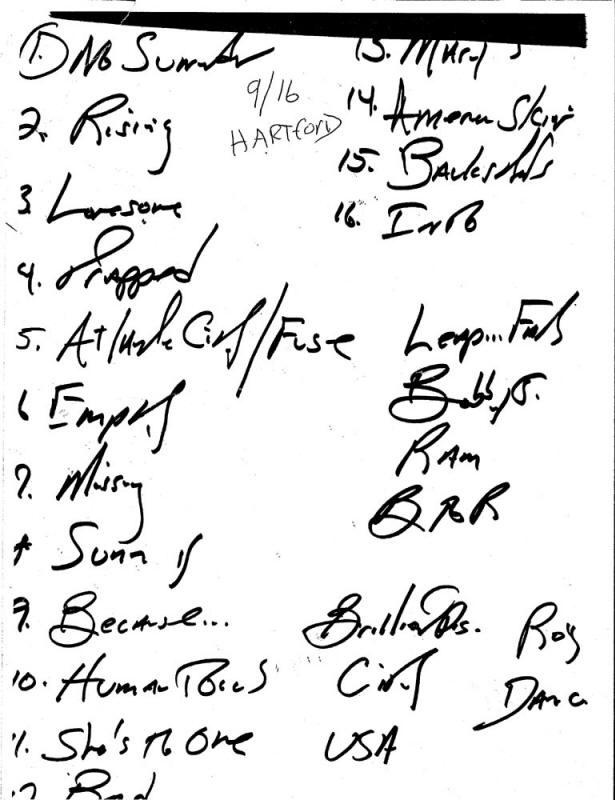 1. No Surrender
2. Rising
3 Lonesome
4. Trapped
5. Atlantic City/Fuse
6 Empty
7. Missing
Sunny
9. Because...
10. Human Touch
11. She's the One
9/16
HARTFORD
13. Mary's
14. American Skin
15. Backstreets
16. Into
Leap... Faith
Bobby J.
RAM
BTOR
Brilliant Dis.
City
USA
Roy
Danc